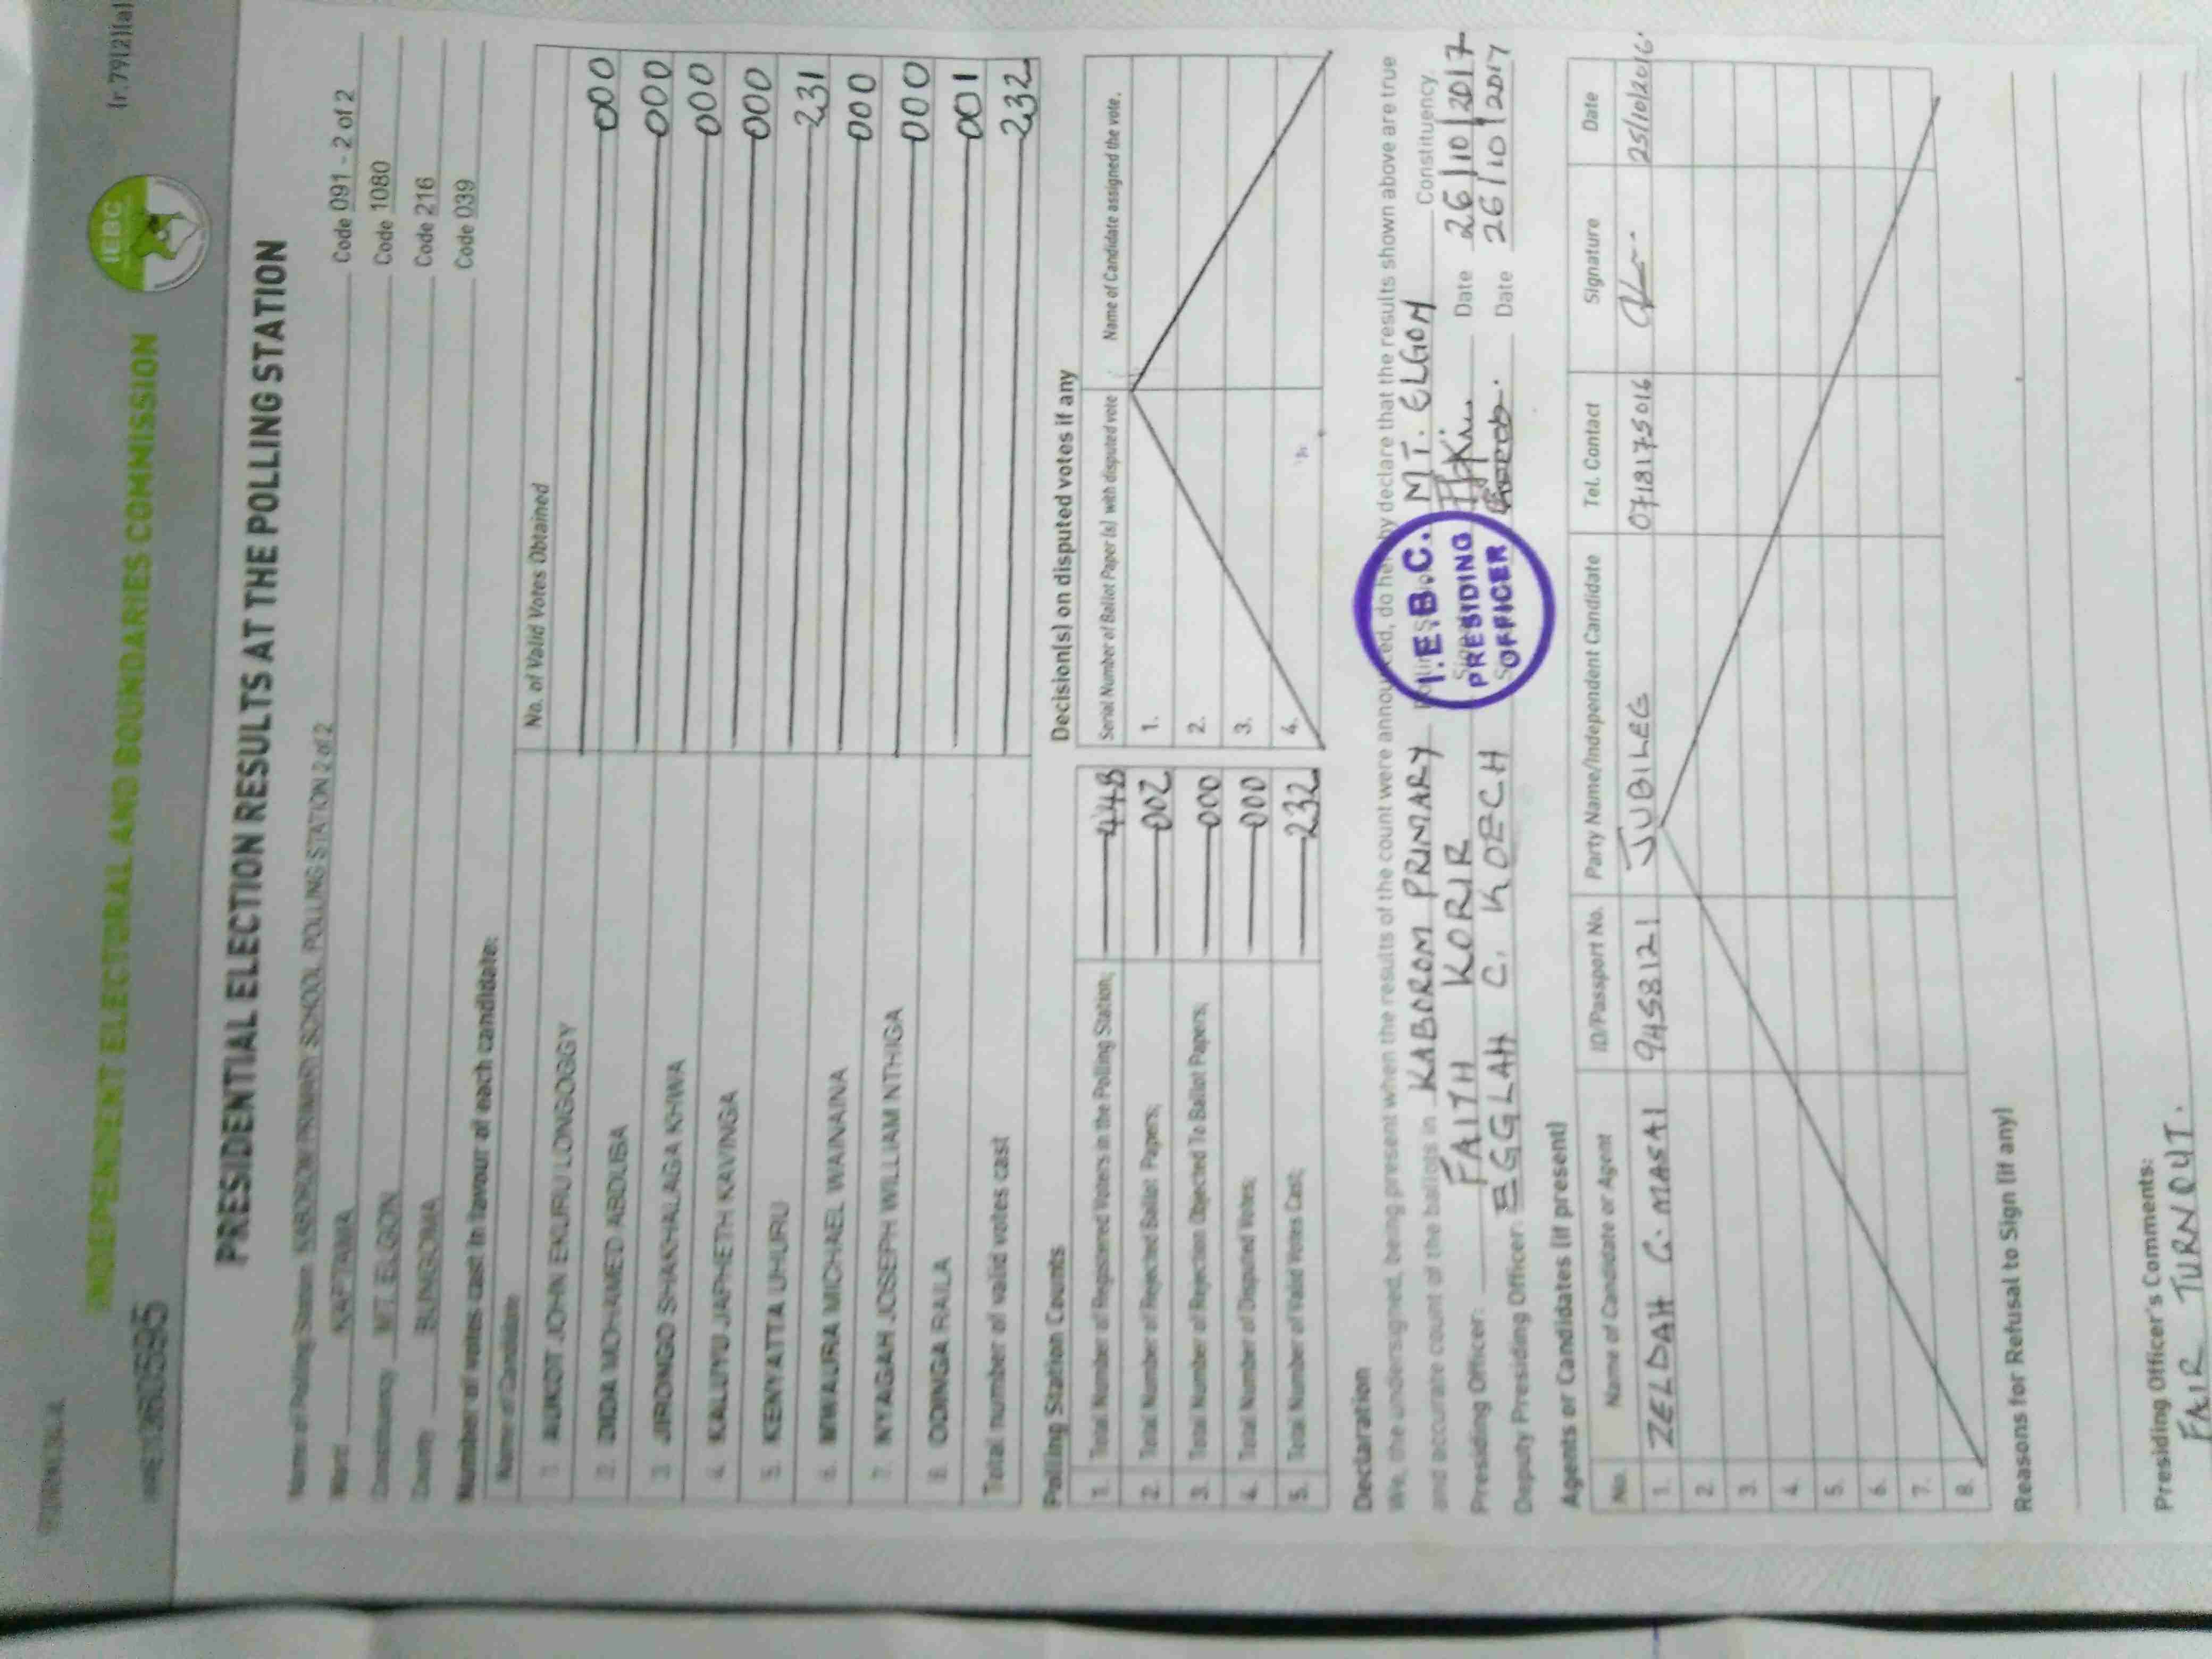 FORM 34A
(r.79(2)(a)
INDEPENDENT ELECTORAL AND BOUNDARIES COMMISSION
IEBC
PRESIDENTIAL ELECTION RESULTS AT THE POLLING STATION
Name of Polling Station KABOROM PRIMARY SCHOOL POLLING STATION 2 of 2 Code 091 - 2 of 2
Ward KAPTAMA Code 1080
Constituency MT. ELGON Code 216
County BUNGOMA Code 039
Number of votes cast in favour of each candidate:
Name of Candidate No. of Valid Votes Obtained
1. AUKOT JOHN EKURU LONGOGGY 000
2. DIDA MOHAMED ABDUBA 000
3. JIRONGO SHAKHALAGA KHWA 000
4. KALUYU JAPHETH KAVINGA 000
5. KENYATTA UHURU 231
6. MWAURA MICHAEL WAINAINA 000
7. NYAGAH JOSEPH WILLIAM NTHIGA 000
8. ODINGA RAILA 001
Total number of valid votes cast 232
Polling Station Counts
1. Total Number of Registered Voters in the Polling Station; 448
2. Total Number of Rejected Ballot Papers; 002
3. Total Number of Rejection Objected To Ballot Papers; 000
4. Total Number of Disputed Votes; 000
5. Total Number of Valid Votes Cast; 232
Decision(s) on disputed votes if any
Serial Number of Ballot Paper (s) with disputed vote Name of Candidate assigned the vote.
1.
2.
3.
4.
Declaration
We, the undersigned, being present when the results of the count were announced, do hereby declare that the results shown above are true
and accurate count of the ballots in KABOROM PRIMARY MT. ELGON Constituency
Presiding Officer: FAITH KORIR Date 26/10/2017
Deputy Presiding Officer: EGGLAH C. KOECH Date 26/10/2017
I.E.B.C.
PRESIDING
OFFICER
Agents or Candidates (if present)
No. Name of Candidate or Agent ID/Passport No. Party Name/Independent Candidate Tel. Contact Signature Date
1. ZELDAH C. MASAI 9458121 JUBILEE 0718175016 25/10/2016
2.
3.
4.
5.
6.
7.
8.
Reasons for Refusal to Sign (if any)
Presiding Officer's Comments:
FAIR TURNOUT.